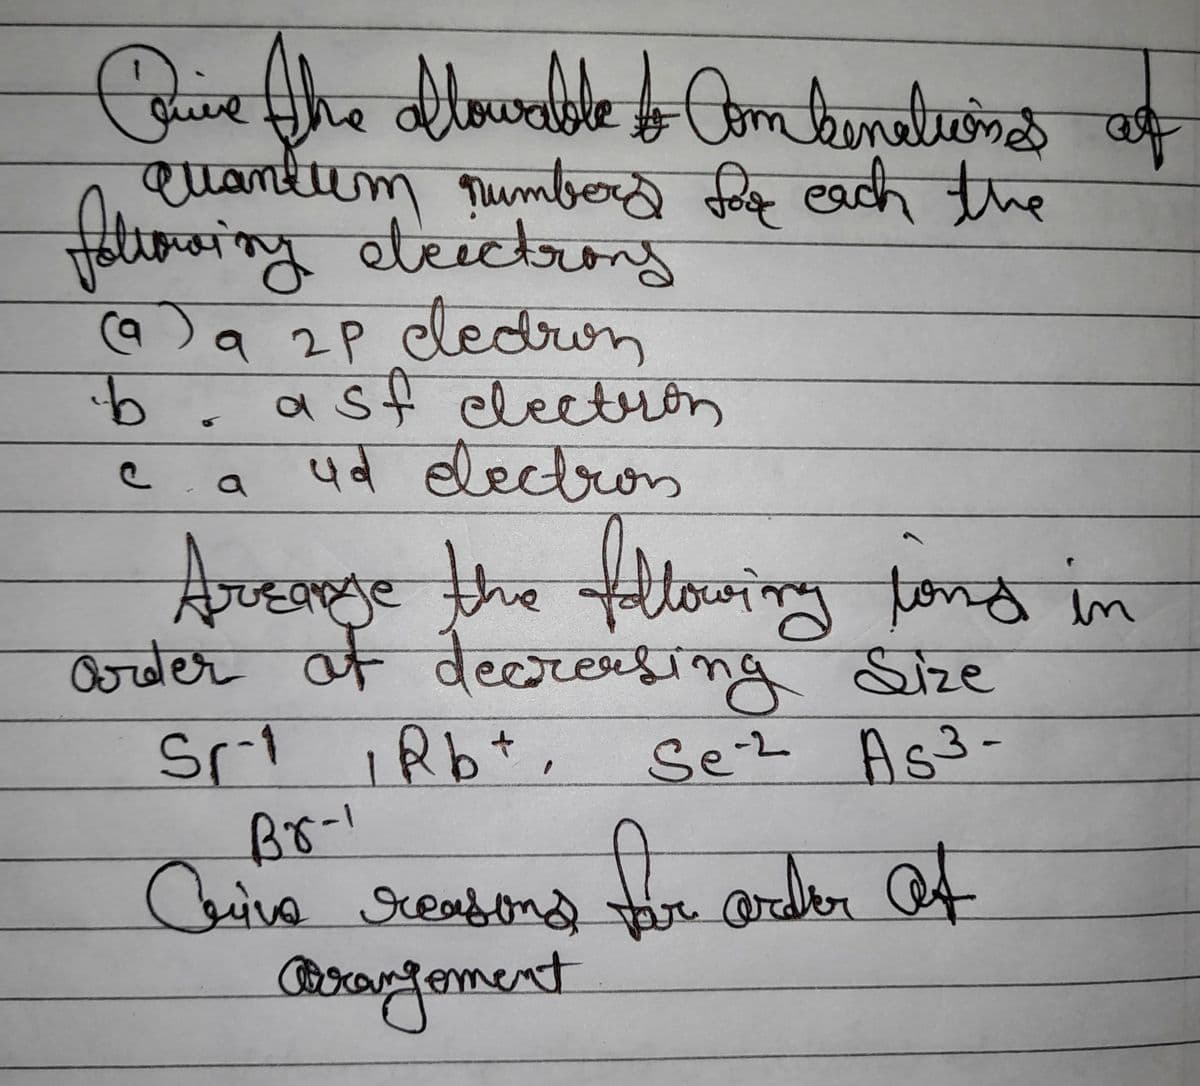 Give the allowable Combinations of
quantum numbers for each the
following electrons
(a) a 2P electron
b. a 5f electron
c. a 4d electron
Arrange the following ions in
order of decreasing Size
Sr-1, Rb+, Se-2 As3-
Br-1
Give reasons for order of
arrangement